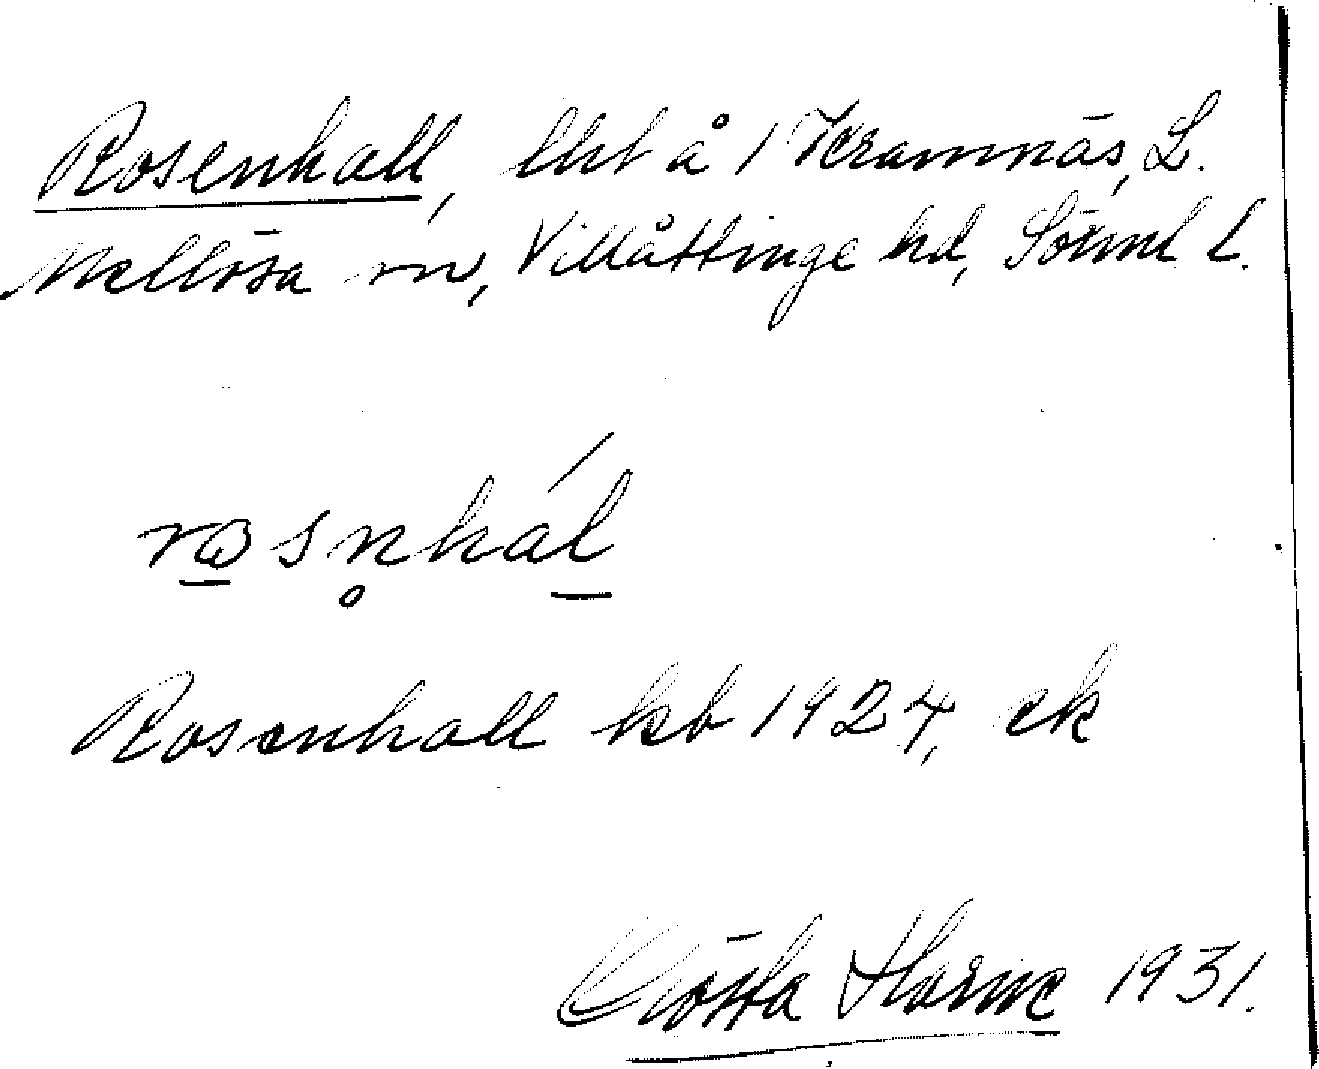 Rosenhall, lht å 1 Kramnäs, L.
Mellösa sn, Villåttinge hd, Sörml l.
rɷsn̥hál
Rosenhall kb 1924, ek
Gösta Horne 1931.